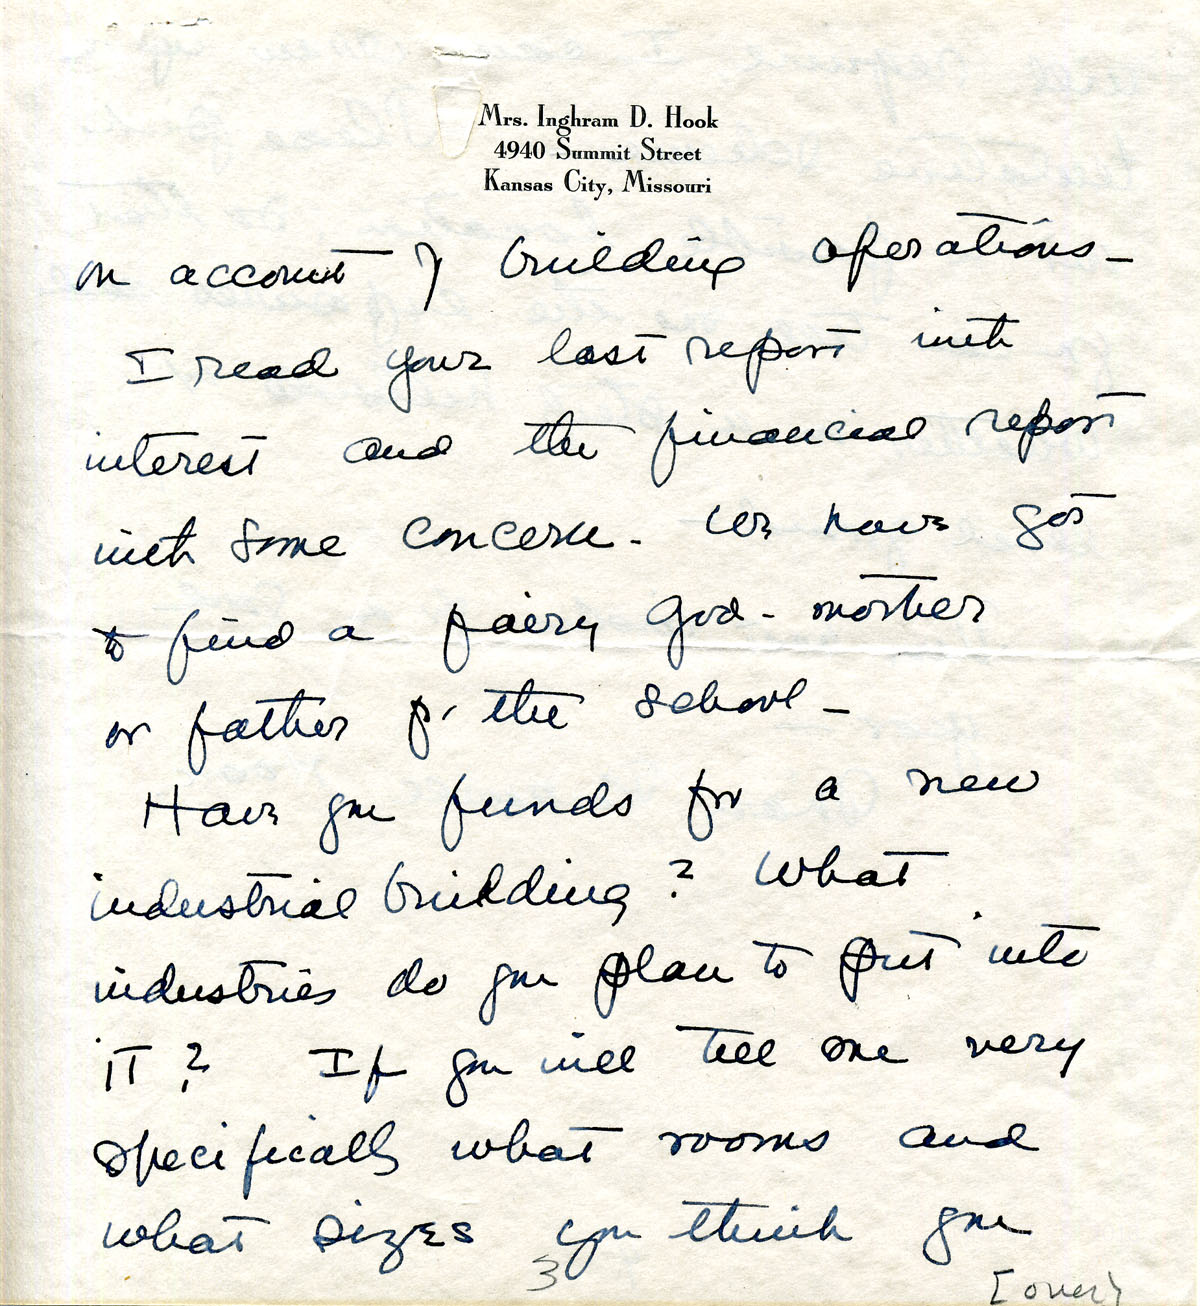 Mrs. Inghram D. Hook
4940 Summit Street
Kansas City, Missouri
on account of building operations -
I read your last report with
interest and the financial report
with some concern. We have got
to find a fairy god-mother
or father for the school -
Have you funds for a new
industrial building? What
industries do you plan to put into
it? If you will tell me very
specifically what rooms and
what sizes you think you
3
[over]